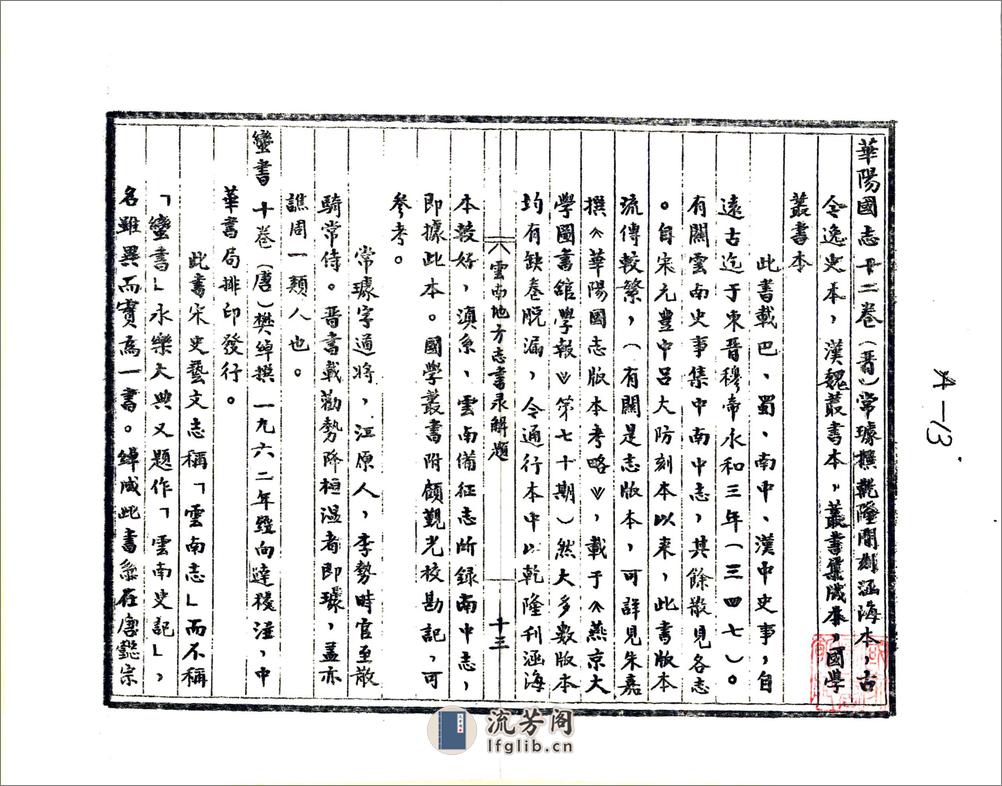 華陽國志十二卷（晋）常璩撰乾隆間刻涵海本，古
今逸史本，漢魏叢書本，叢書集成本，國学
叢書本
此書載巴、蜀、南中、漢中史事；自
遠古迄于東晋穆帝永和三年（三四七）。
有關雲南史事集中南中志，其餘散見各志
。自宋元豊中呂大防刻本以来，此書版本
流傳較繁，（有關是志版本，可詳見朱嘉
撰《華陽國志版本考略》，載于《燕京大
学圖書舘学報》第七十期）然大多數版本
均有缺卷脱漏，今通行本中以乾隆刊涵海
雲南地方志書录解題
十三
本較好，滇系、雲南備征志所録南中志，
即據此本。國学叢書附顧觀光校勘記，可
参考。
常璩字道将，江原人，李勢時官至散
騎常侍。晋書載勸勢降桓温者即璩，盖亦
譙周一類人也。
蠻書十卷（唐）樊绰撰一九六二年經向達校注，中
華書局排印發行。
此書宋史藝文志稱「雲南志」而不稱
「蠻書」永樂大典又題作「雲南史記」，
名雖異而實為一書。绰成此書系在唐懿宗
A-13
流芳阁
lfglib.cn